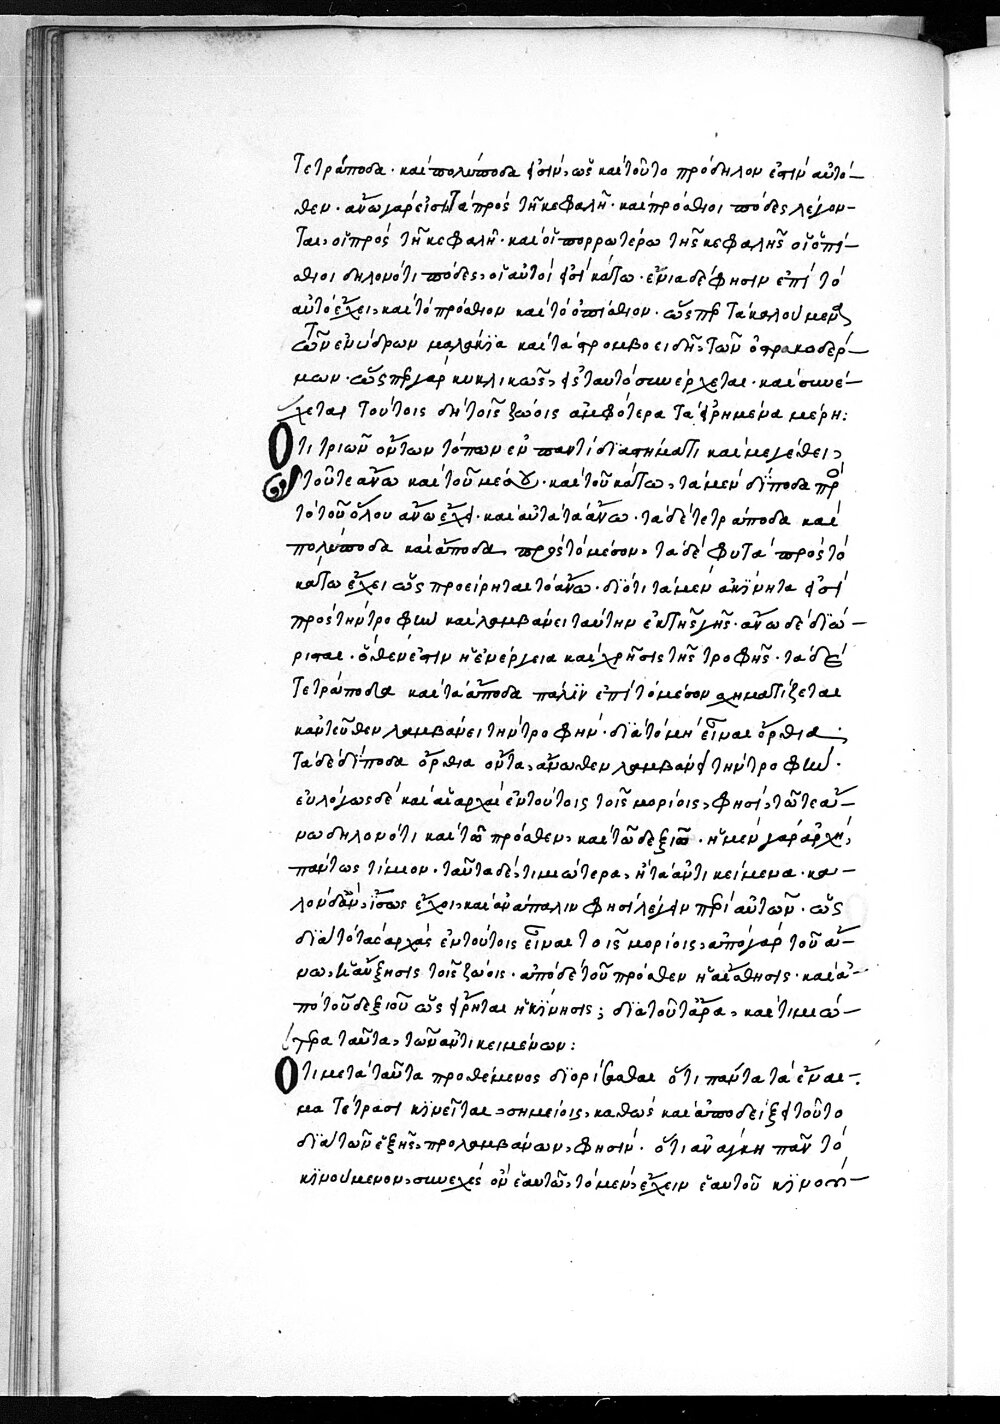 τετράποδα· καὶ πολύποδα ἐστίν, ὡς καὶ τοῦτο πρόδηλον ἐστὶν αὐτό-
θεν· ἄνω γάρ εἰσι τὰ πρὸς τῇ κεφαλῇ· καὶ πρόσθιοι πόδες λέγον-
ται, οἱ πρὸς τῇ κεφαλῇ· καὶ οἱ πορρωτέρω τῆς κεφαλῆς οἱ ὀπί-
σθιοι δηλονότι πόδες, οἱ αὐτοί εἰσι κάτω· ἔνια δέ φησιν ἐπὶ τὸ
αὐτὸ ἔχει, καὶ τὸ πρόσθιον καὶ τὸ ὀπίσθιον· ὥσπερ τὰ καλούμενα
τῶν ἐνύδρων μαλάκϊα καὶ τὰ στρομβοειδῆ, τῶν ὀστρακοδέρ-
μων· ὥσπερ γὰρ κυκλικῶς, εἰς ταυτὸ συνέρχεται· καὶ συνέ-
χεται τούτοις δὴ τοῖς ζώοις ἀμφότερα τὰ εἰρημένα μέρη:
Ὅτι τριῶν ὄντων τόπων ἐν παντὶ διαστήματι καὶ μεγέθει,
τοῦ τε ἄνω καὶ τοῦ μέσου· καὶ τοῦ κάτω, τὰ μὲν δίποδα πρὸς
τὸ τοῦ ὅλου ἄνω ἔχει· καὶ αὐτὰ τὰ ἄνω· τὰ δὲ τετράποδα καὶ
πολύποδα καὶ ἄποδα, πρὸς τὸ μέσον, τὰ δὲ φυτὰ πρὸς τὸ
κάτω ἔχει ὡς προείρηται τὸ ἄνω· διότι τὰ μὲν ἀκίνητα εἰσὶ
πρὸς τὴν τροφὴν καὶ λαμβάνει ταύτην ἐκ τῆς γῆς· ἄνω δὲ διώ-
ρισται· ὅθεν ἐστὶν ἡ ἐνέργεια καὶ χρῆσις τῆς τροφῆς· τὰ δὲ
τετράποδα καὶ τὰ ἄποδα πάλιν ἐπὶ τὸ μέσον σχηματίζεται
κἀντεῦθεν λαμβάνει τὴν τροφήν· διὰ τὸ μὴ εἶναι ὄρθια·
τὰ δὲ δίποδα ὄρθια ὄντα, ἄνωθεν λαμβάνει τὴν τροφήν·
εὐλόγως δὲ καὶ αἱ ἀρχαὶ ἐν τούτοις τοῖς μορίοις, φησί, τῶ τε ἄ-
νω δηλονότι καὶ τῶ πρόσθεν, καὶ τῶ δεξιῶ· ἡ μὲν γὰρ ἀρχή,
πάντως τίμιον· ταῦτα δέ, τιμιώτερα, ἢ τὰ ἀντικείμενα· κα-
λὸν δ' ἂν, ἴσως ἔχοι, καὶ ἀνάπαλιν φησὶ λέγειν περὶ αὐτῶν· ὡς
διὰ τὸ τὰς ἀρχὰς ἐν τούτοις εἶναι τοῖς μορίοις, ἀπὸ γὰρ τοῦ ἄ-
νω, ἡ αὔξησις τοῖς ζώοις· ἀπὸ δὲ τοῦ πρόσθεν ἡ αἴσθησις· καὶ ἀ-
πὸ τοῦ δεξιοῦ ὡς εἴρηται ἡ κίνησις; διὰ τοῦτ' ἄρα, καὶ τιμιώ-
τερα ταῦτα, τῶν ἀντικειμένων:
Ὅτι μετὰ ταῦτα προθέμενος διορίσασθαι ὅτι πάντα τὰ ἔναι-
μα τέτρασι κινεῖται, σημείοις, καθὼς καὶ ἀποδείξει τοῦτο
διὰ τῶν ἑξῆς, προλαμβάνων, φησίν· ὅτι ἀνάγκη πᾶν τὸ
κινούμενον, συνεχὲς ὂν ἑαυτῶ, τὸ μέν, ἔχειν ἑαυτοῦ κινού-